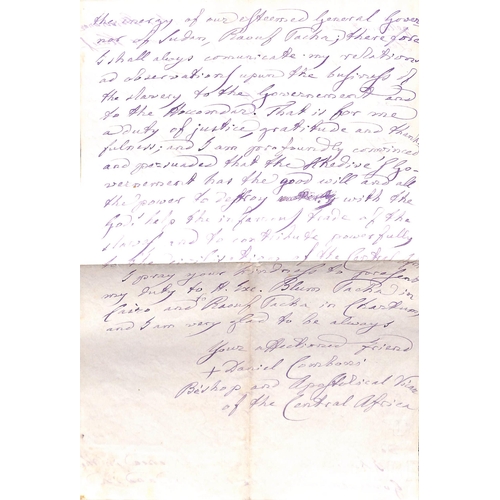 the energy of our esteemed General Gover-
nor of Sudan, Raouf Pacha; therefore
I shall always communicate my relations
ad observations upon the business of
the slavery to the Governement and
to the . That is for me
a duty of justice, gratitude and thank-
fulness; and I am profoundly convinced
and persuaded that the Khedive's Go-
vernement has the good will and all
the power to distroy with the
God's help the infamous trade of the
slaves, and to contribute powerfully
to the civilisation of the Central
I pray your kindness to present
my duty to H. Exc. Blum Pacha in
Cairo and Raouf Pacha in Chartum
and I am very glad to be always
Your affectioned friend
+ Daniel Comboni
Bishop and Apostolical Vicar
of the Central Africa